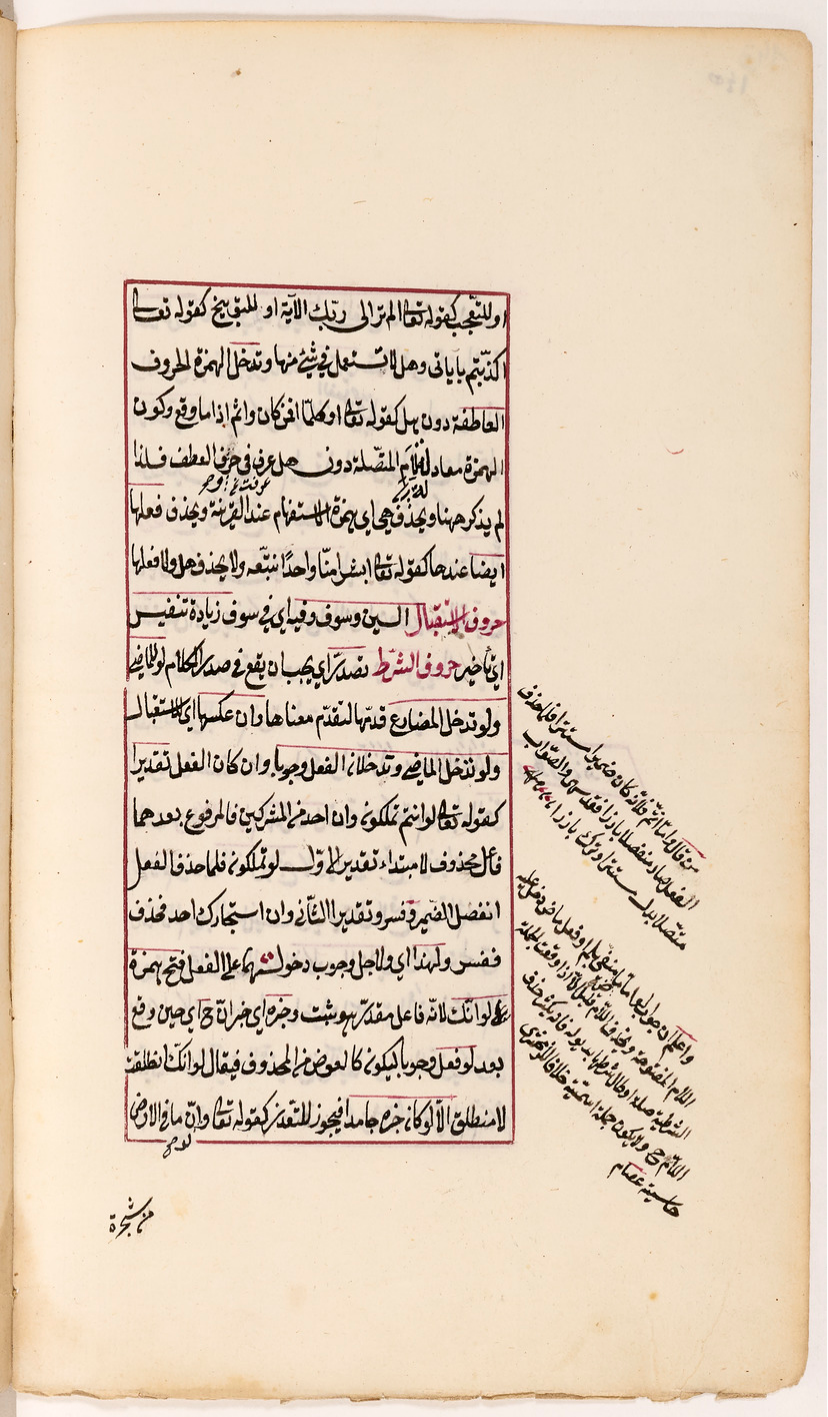 او للتعجب كقوله تعالى الم تر الى ربك الآية او للتوبيخ كقوله تعالى
اكذبتم بآياتي وهل لا تستعمل في شئ منها وتدخل الهمزة الحروف
العاطفة دون هل كقوله تعالى اوكلما افمن كان واثم اذا ما وقع وكون
الهمزة معادلة لام المتصلة دون هل عرف في حرف العطف فلذا
لم يذكر ههنا ويحذف هي اي همزة الاستفهام عند القرينة ويحذف فعلها
ايضا عندها كقوله تعالى ابشرا منا واحدا نتبعه ولا يحذف هل ولا فعلها
حروف الاستقبال السين وسوف وفيه اي في سوف زيادة تنفيس
اي تأخير حروف الشرط تصدر اي يجب ان يقع في صدر الكلام لو للماضي
ولو تدخل المضارع قدمها لتقدم معناها وان عكسها اي الاستقبال
ولو تدخل الماضي وتدخلان الفعل وجوبا وان كان الفعل تقديرا
كقوله تعالى لو انتم تملكون وان احد من المشركين فالمرفوع بعدهما
فاعل محذوف لا مبتداء تقدير الاول لو تملكون فلما حذف الفعل
انفصل الضمير وفسر وتقدير الثاني وان استجارك احد فحذف
ففسر ولهذا اي ولاجل وجوب دخولهما على الفعل فتح همزة
لو انك لانه فاعل مقدر هو ثبت وخبره اي خبر ان ح اي حين وقع
بعد لو فعل وجوبا ليكون كالعوض من المحذوف فيقال لو انك انطلقت
لا منطلق الا لو كان خبره جامدا فيجوز للتعذر كقوله تعالى ولو ان ما في الارض
من شجرة
من قال واما انتم فلانه كان ضميرا مستترا فلما حذف
الفعل صار منفصلا بارزا فقد سهى والصواب
متصلا بدل مستترا وترك بارزا
واعلم ان جواب لو اما ماض منفي بلم او فعل ماض دخل عليه
اللام المفتوحة ويحذف اللام قليلا الا اذا وقعت الجملة
الشرطية صلة او طال شرطها بذيوله فانه يكثر حذف
اللام ح ولا يكون جملة اسمية خلافا للزمخشري
حاشية عصام